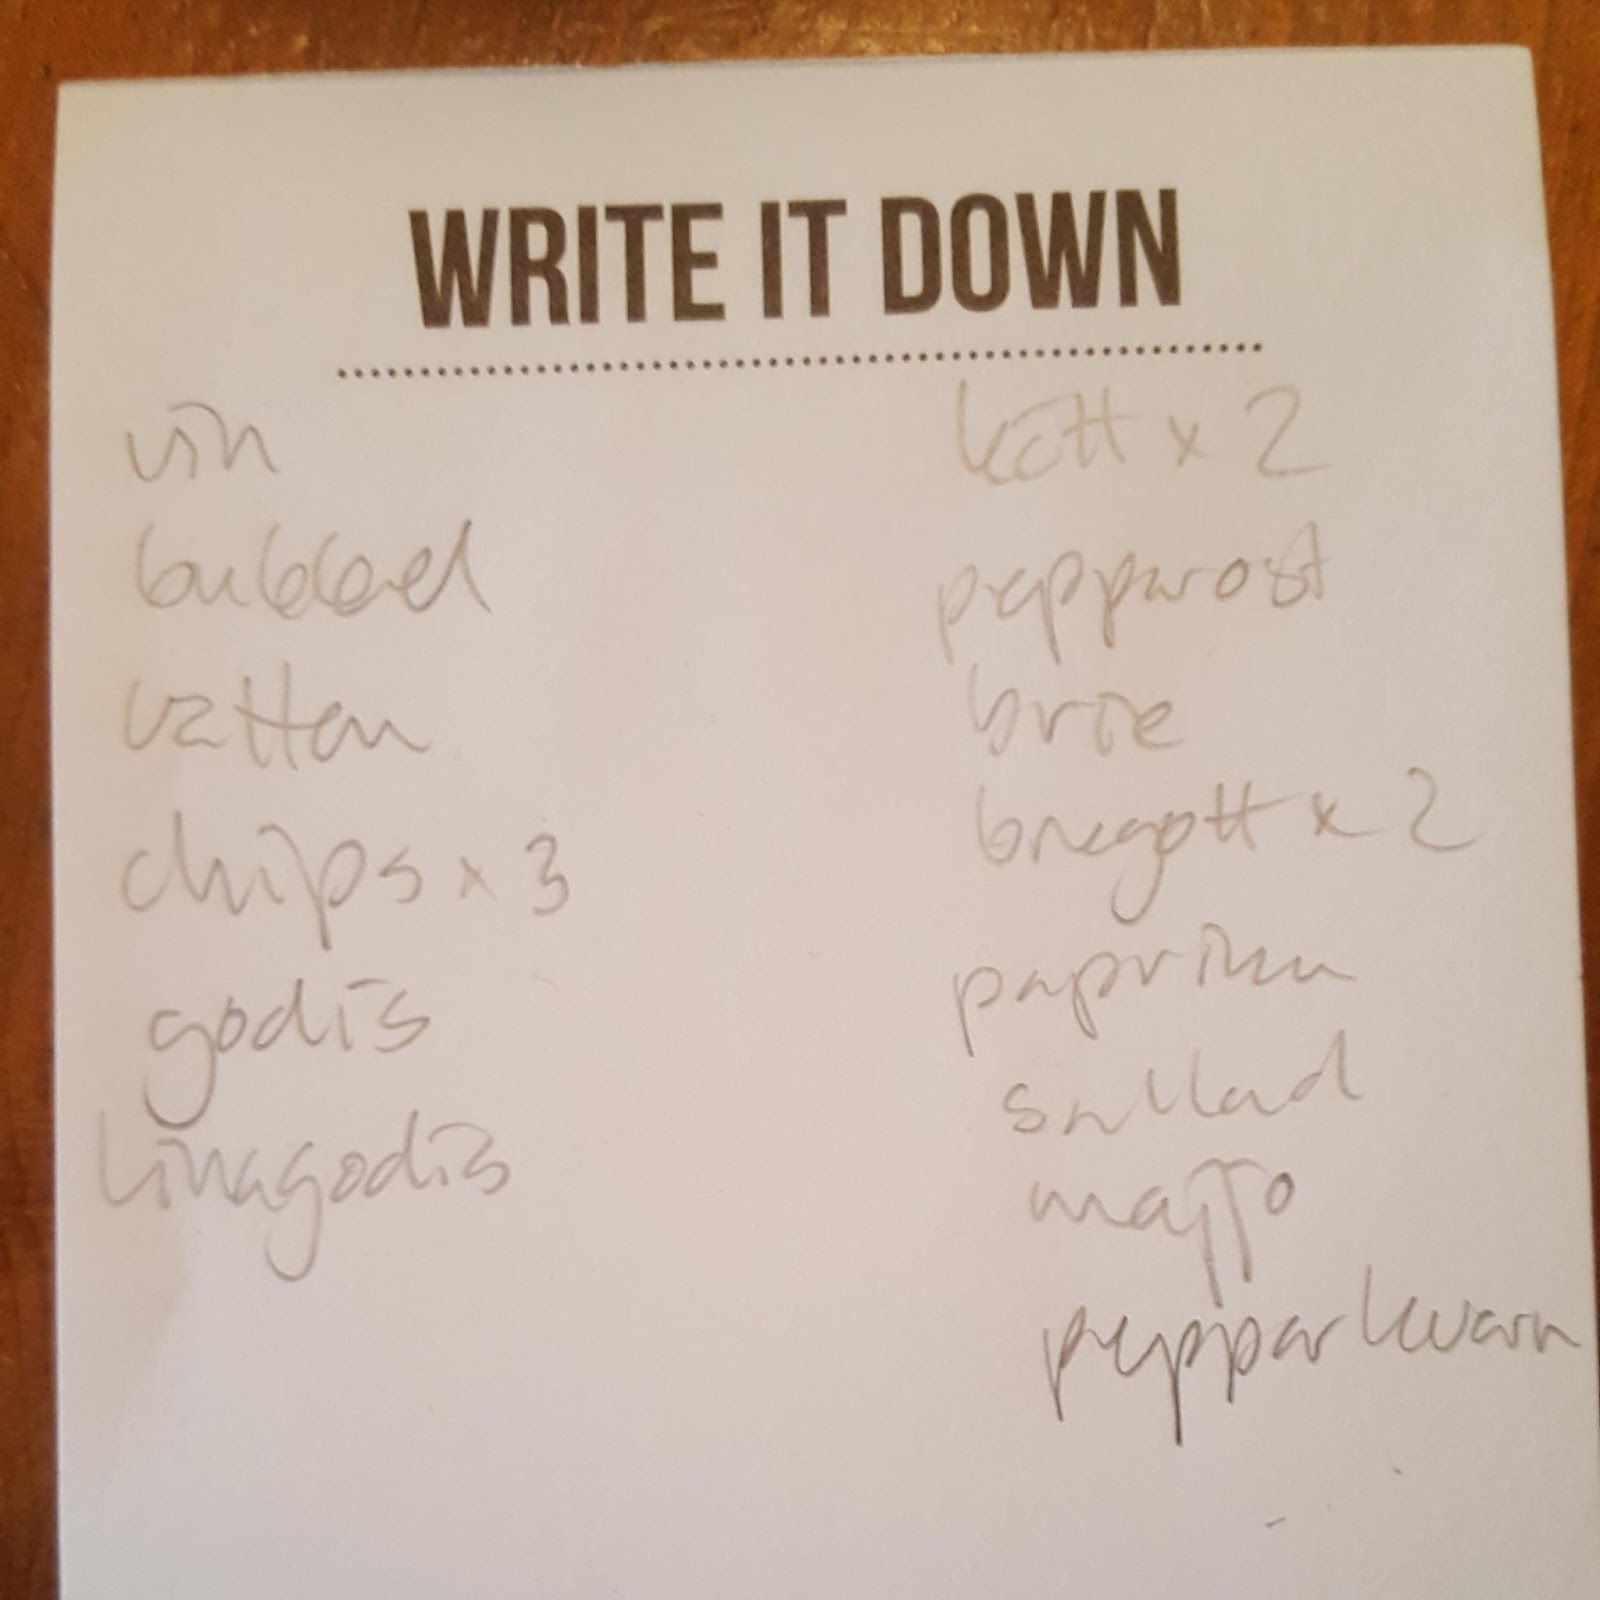 WRITE IT DOWN
vin
bubbel
vatten
chips x 3
godis
linagodis
kött x 2
pepparost
brie
bregott x 2
paprika
sallad
majjo
pepparkvarn